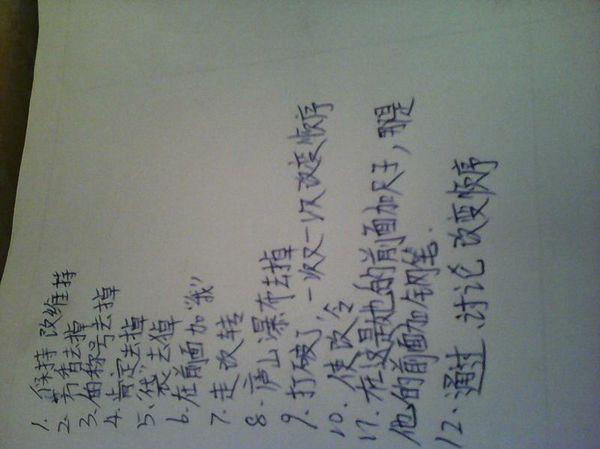 1. 保持 改维持
2. 方看去掉
3. 佃称号去掉
4. 肯定去掉
5. 袋 去掉
6. 在前面加“我”
7. 走 改 转
8. 庐山瀑布去掉
9. 打破了 一次又一次 改变顺序
10. 使 改 令
11. 在这是她的前面加尺子，那是
他的前面加钢笔.
12. 通过 讨论 改变顺序